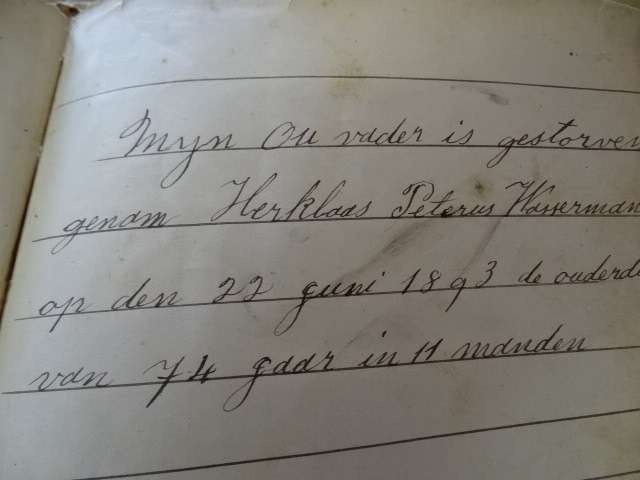 Myn Ou vader is gestorven
genam Herklaas Peterus Wasserman
op den 22 guni 1893 de ouderd
van 74 gaar in 11 manden